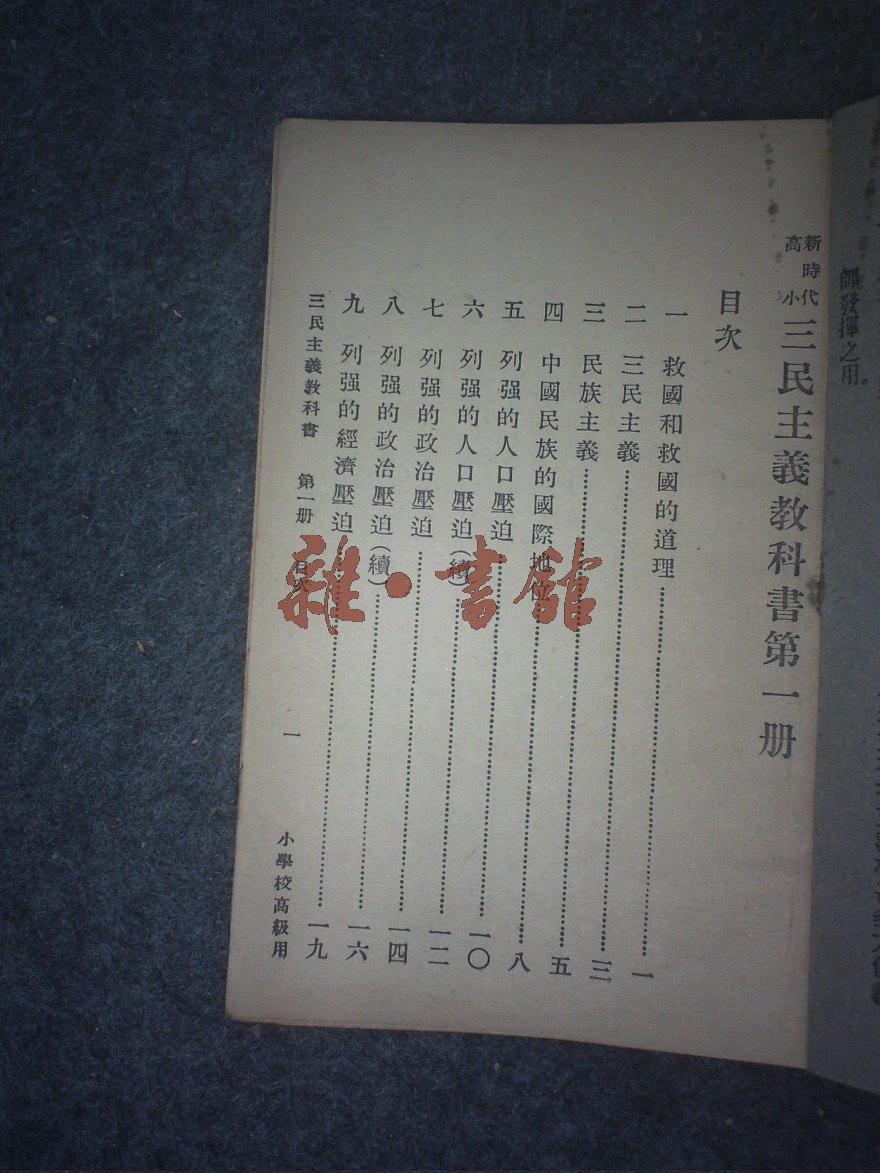 師發揮之用。
新時代高小
三民主義教科書第一册
目次
一 救國和救國的道理……一
二 三民主義……三
三 民族主義……五
四 中國民族的國際地位……八
五 列强的人口壓迫……一〇
六 列强的人口壓迫(續)……一二
七 列强的政治壓迫……一四
八 列强的政治壓迫(續)……一六
九 列强的經濟壓迫……一九
三民主義教科書 第一册 目次 一 小學校高級用
雜·書館